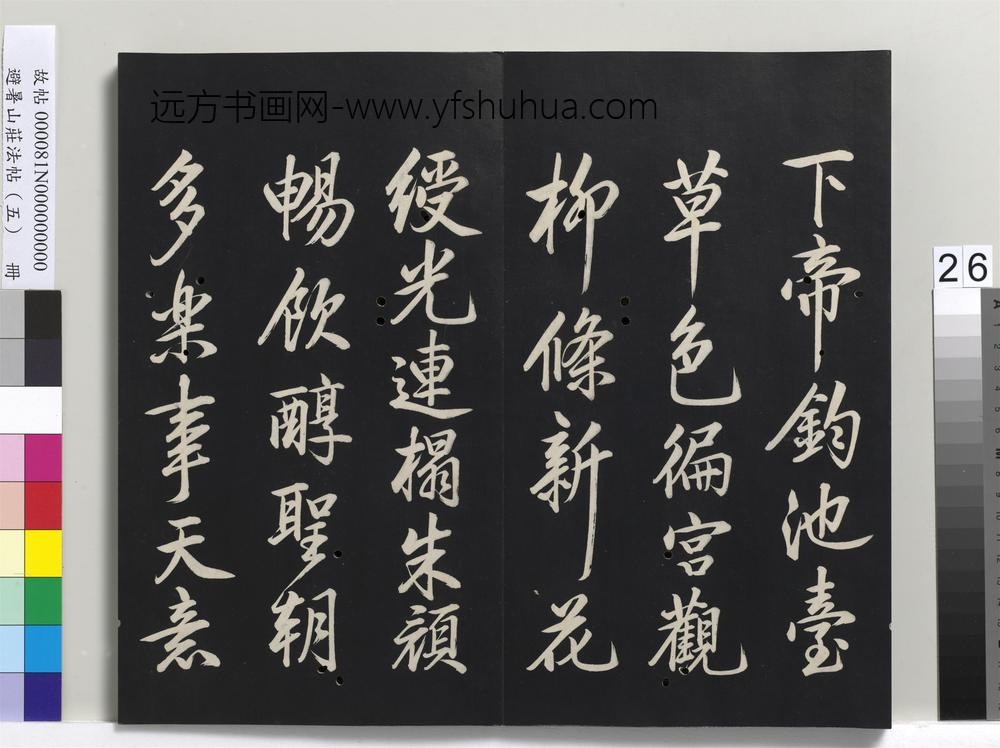 下帝鈞池臺
草色徧宮觀
柳條新花
綬光連榻朱顔
暢飲醇聖朝
多樂事天意
远方书画网-www.yfshuhua.com
故帖 000081N000000000
避暑山莊法帖（五） 冊
26